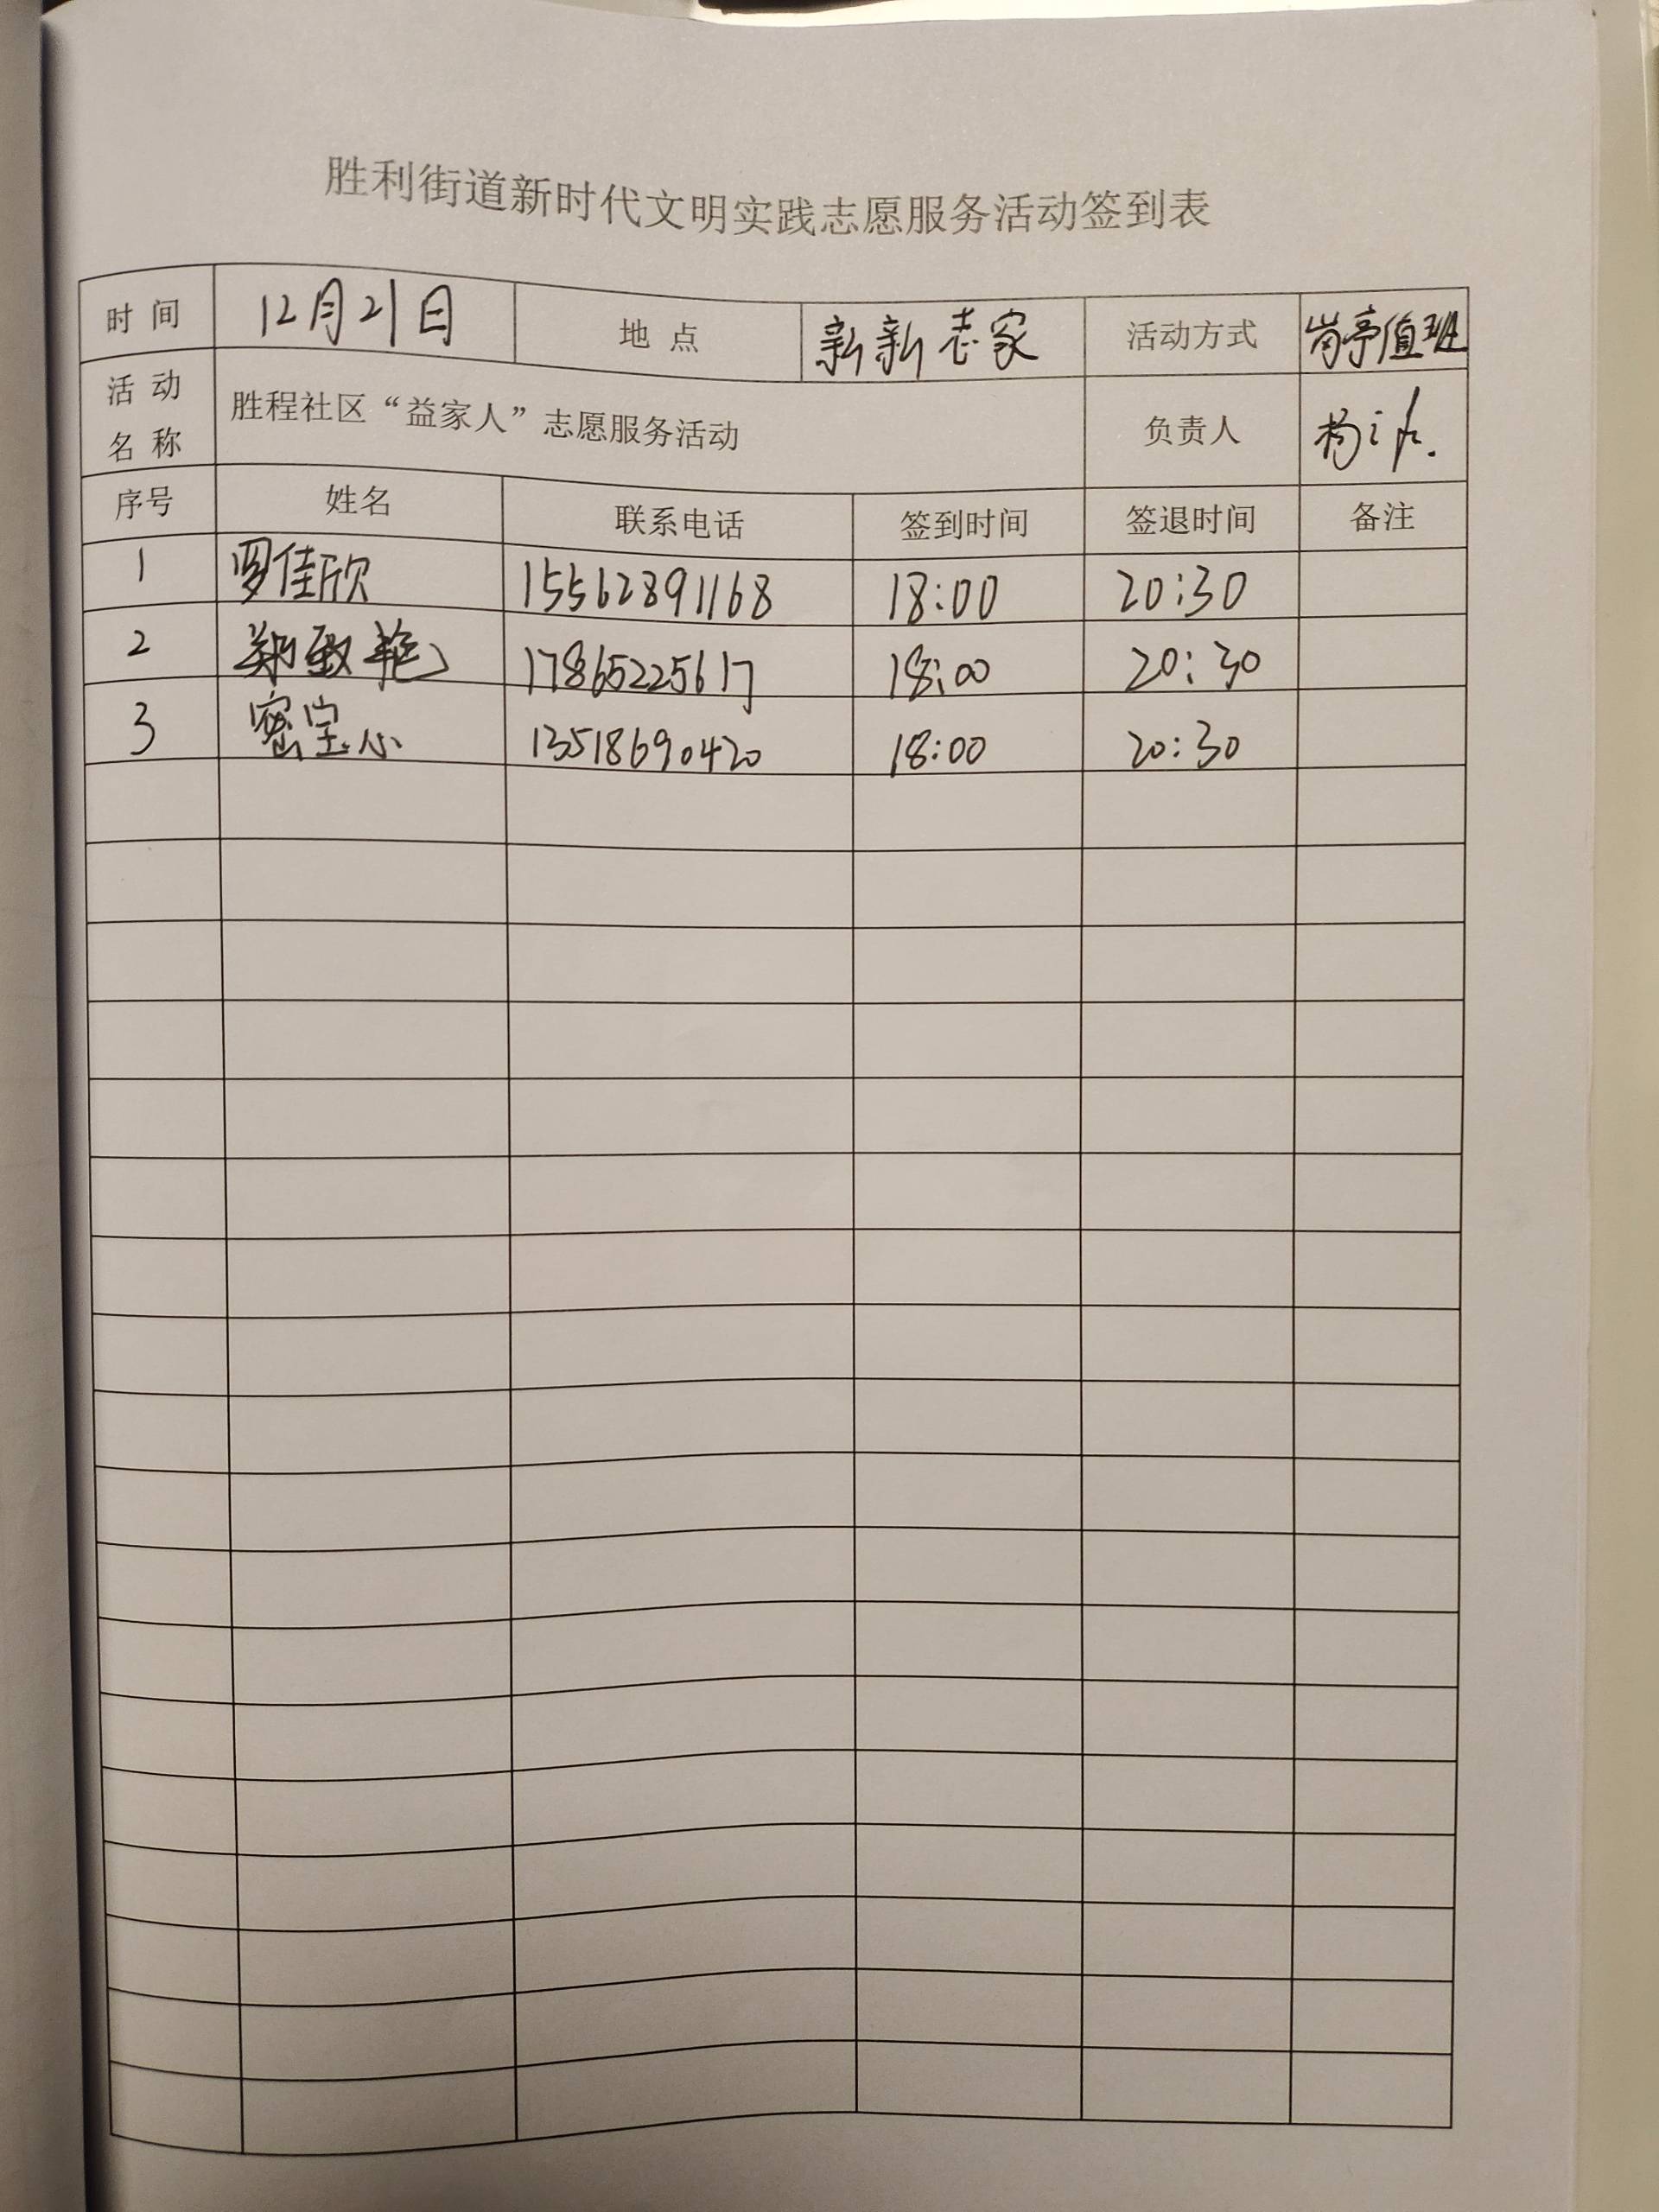 胜利街道新时代文明实践志愿服务活动签到表
时 间 12月21日 地 点 新新志家 活动方式 岗亭值班
活动名称 胜程社区“益家人”志愿服务活动 负责人
序号 姓名 联系电话 签到时间 签退时间 备注
1 罗佳欣 15562891168 18:00 20:30
2 郑致艳 17865225617 18:00 20:30
3 密宝心 13518690420 18:00 20:30